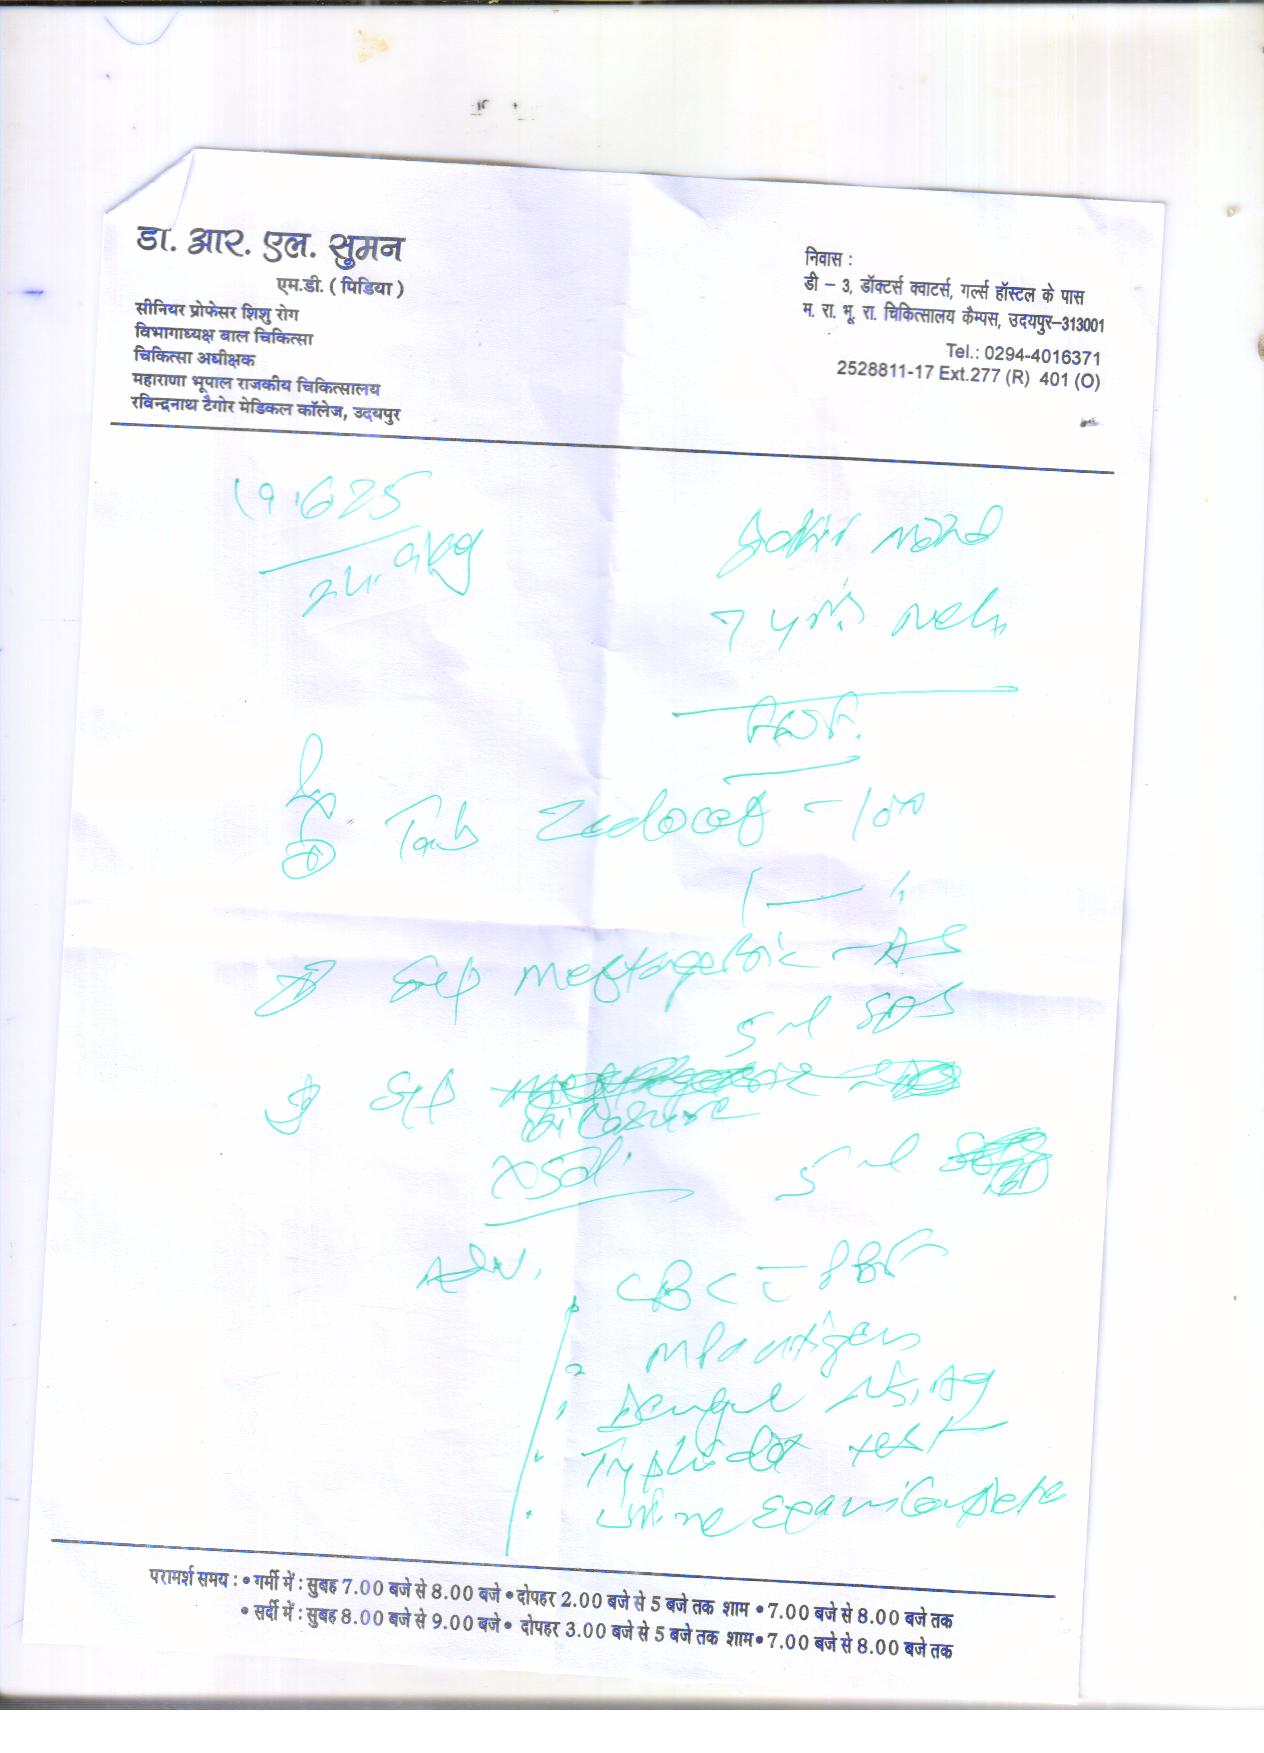 डा. आर. एल. सुमन
एम.डी. ( पिडिया )
सीनियर प्रोफेसर शिशु रोग
विभागाध्यक्ष बाल चिकित्सा
चिकित्सा अधीक्षक
महाराणा भूपाल राजकीय चिकित्सालय
रविन्द्रनाथ टैगोर मेडिकल कॉलेज, उदयपुर
निवास :
डी – 3, डॉक्टर्स क्वाटर्स, गर्ल्स हॉस्टल के पास
म. रा. भू. रा. चिकित्सालय कैम्पस, उदयपुर–313001
Tel.: 0294-4016371
2528811-17 Ext.277 (R) 401 (O)
7 yrs
Tab - 100
Syp
5 ml SOS
Syp
5 ml
Adv.
CBC PBF
MP antigen
Dengue NS1Ag
Typhidot test
Urine Exam Complete
परामर्श समय : • गर्मी में : सुबह 7.00 बजे से 8.00 बजे • दोपहर 2.00 बजे से 5 बजे तक शाम • 7.00 बजे से 8.00 बजे तक
• सर्दी में : सुबह 8.00 बजे से 9.00 बजे • दोपहर 3.00 बजे से 5 बजे तक शाम • 7.00 बजे से 8.00 बजे तक